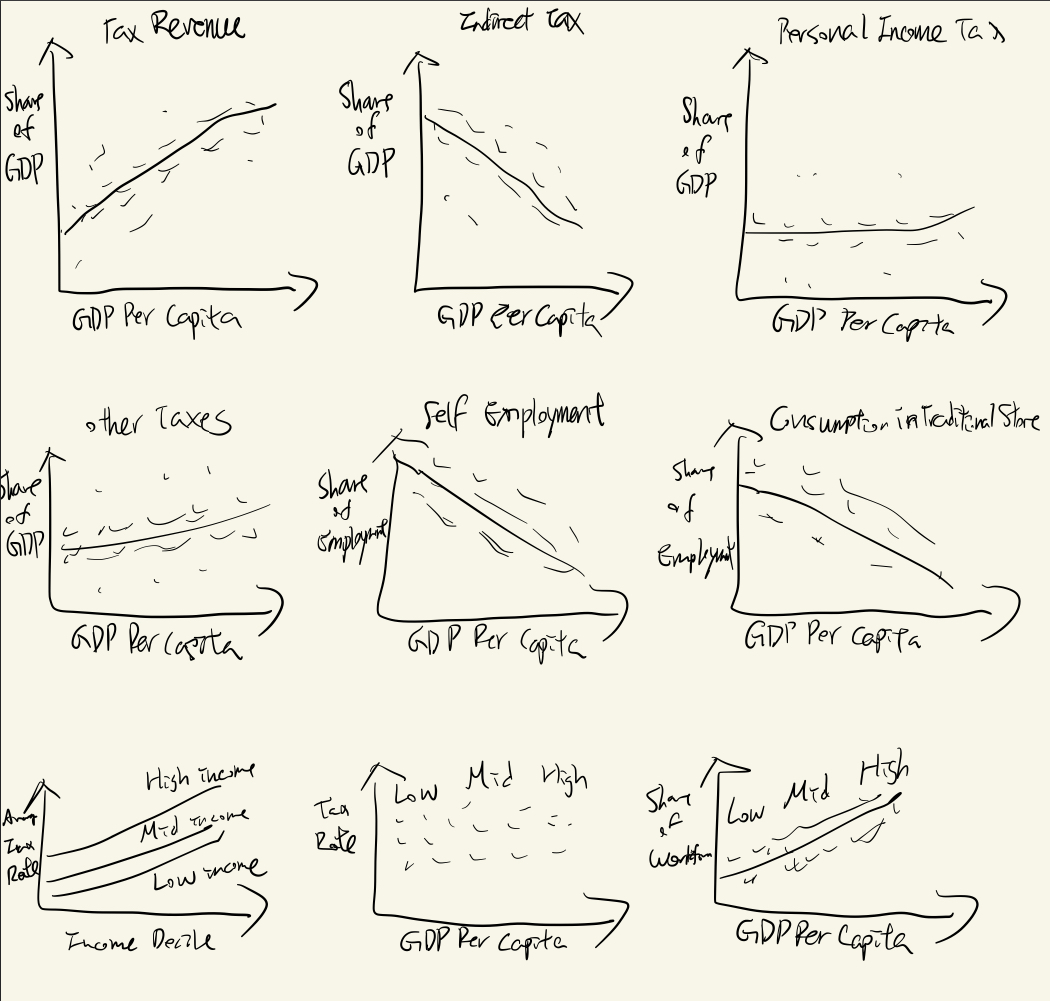 Tax Revenue
Share
of
GDP
GDP Per Capita
Indirect Tax
Share
of
GDP
GDP Per Capita
Personal Income Tax
Share
of
GDP
GDP Per Capita
Other Taxes
Share
of
GDP
GDP Per Capita
Self Employment
Share
of
Employment
GDP Per Capita
Consumption in Traditional Store
Share
of
Employment
GDP Per Capita
High income
Mid income
Low income
Tax
Rate
Income Decile
Low Mid High
Tax
Rate
GDP Per Capita
Low Mid High
Share
of
GDP Per Capita